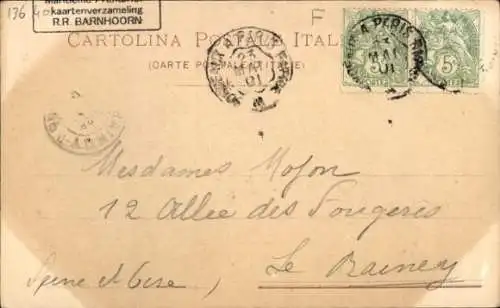 136
kaartenverzameling
R.R. BARNHOORN
F
CARTOLINA POSTALE ITALIANA
(CARTE POSTALE D'ITALIE)
BORDEAUX A PARIS
23
MAI
01
5c
5c
Mesdames Mofon
12 Allée des Fougerès
Le Rainey
Seine et Oise